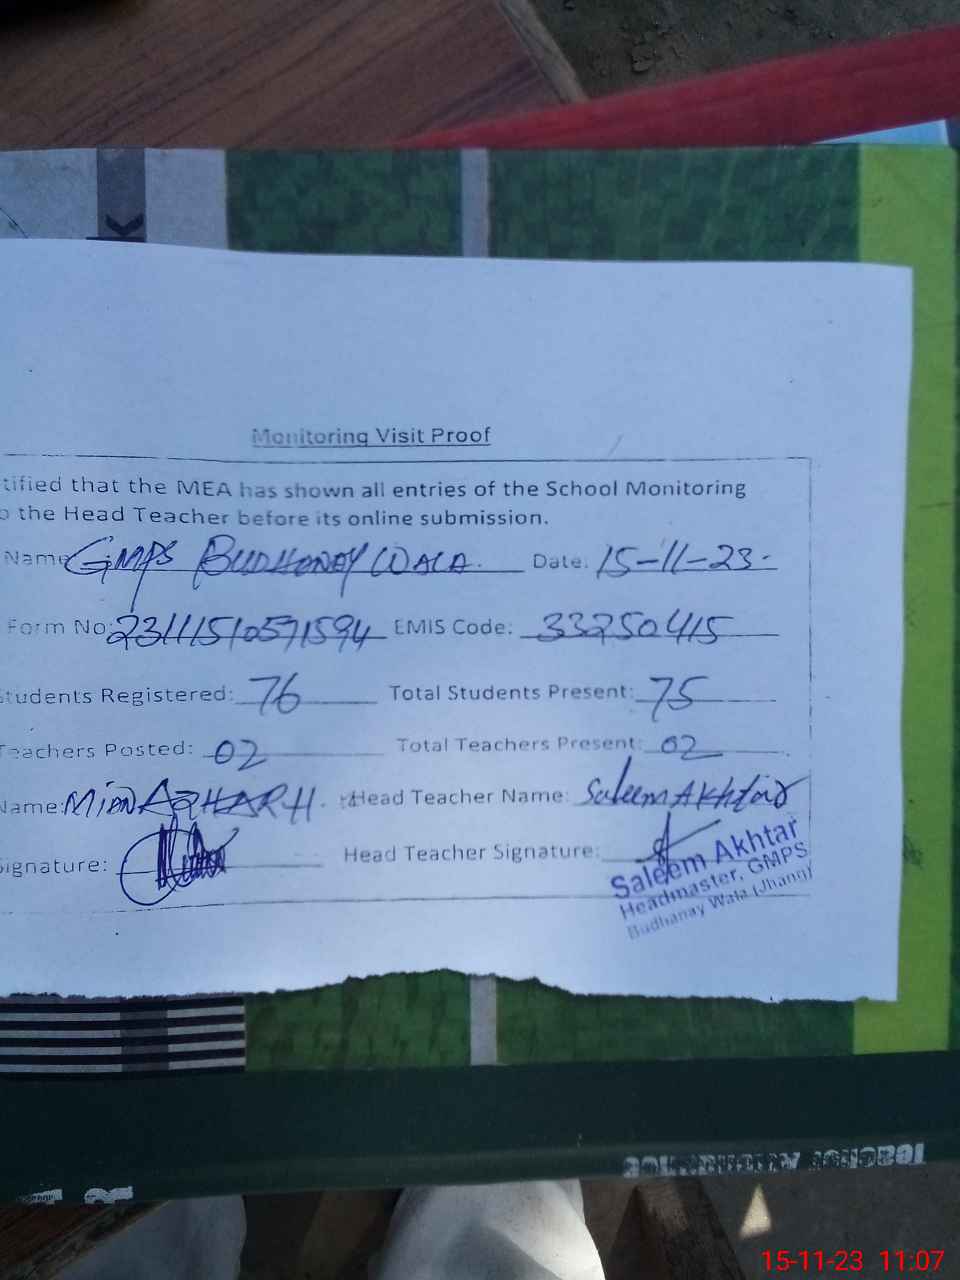 Monitoring Visit Proof
tified that the MEA has shown all entries of the School Monitoring
o the Head Teacher before its online submission.
Name GMPS BUDHANAY WALA. Date: 15-11-23.
Form No: 23111510571594 EMIS Code: 33250415
Students Registered: 76 Total Students Present: 75
Teachers Posted: 02 Total Teachers Present: 02
Name: MIAN AZHAR H. Head Teacher Name: Saleem Akhtar
Signature: Head Teacher Signature:
Saleem Akhtar
Headmaster, GMPS
Budhanay Wala (Jhang)
15-11-23 11:07